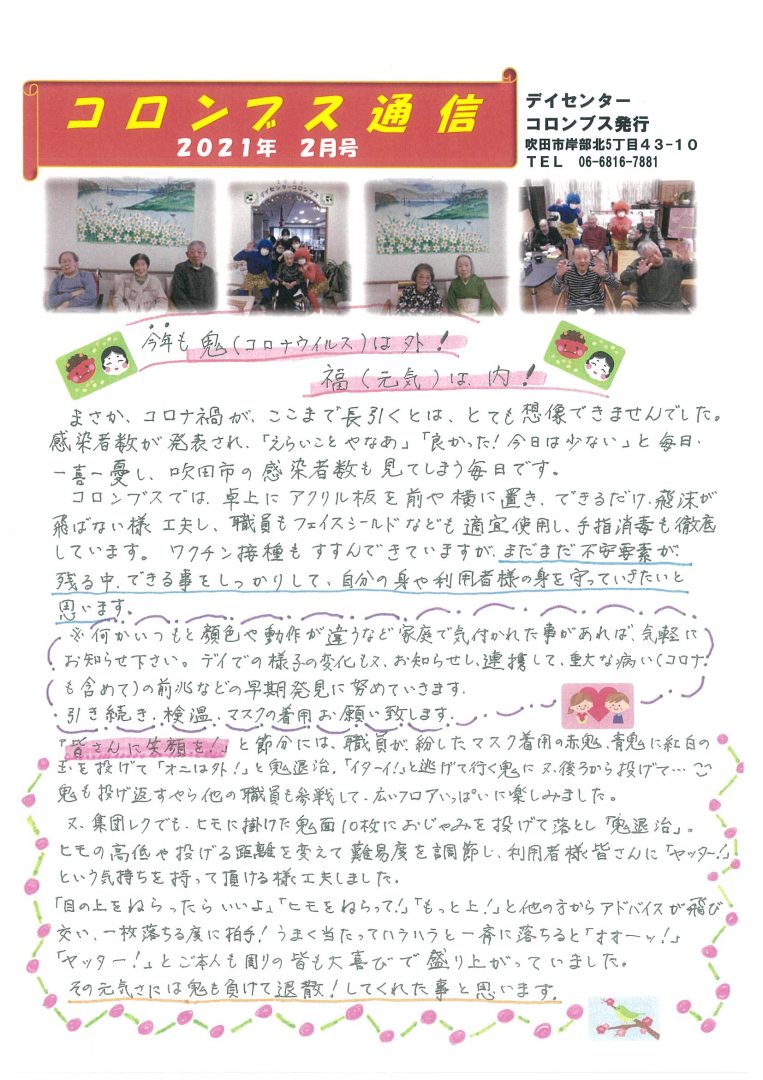 コロンブス通信
2021年 2月号
デイセンター
コロンブス発行
吹田市岸部北5丁目43-10
TEL 06-6816-7881
デイセンターコロンブス
今年も鬼(コロナウイルス)は外!
福(元気)は、内!
まさか、コロナ禍が、ここまで長引くとは、とても想像できませんでした。
感染者数が発表され、「えらいことやなあ」「良かった!今日は少ない」と毎日、
一喜一憂し、吹田市の感染者数も見てしまう毎日です。
コロンブスでは、卓上にアクリル板を前や横に置き、できるだけ、飛沫が
飛ばない様工夫し、職員もフェイスシールドなども適宜使用し、手指消毒も徹底
しています。ワクチン接種もすすんできていますが、まだまだ不安要素が、
残る中、できる事をしっかりして、自分の身や利用者様の身を守っていきたいと
思います。
※何かいつもと顔色や動作が違うなど家庭で気付かれた事があれば、気軽に
お知らせ下さい。デイでの様子の変化も又、お知らせし、連携して、重大な病い(コロナ
も含めて)の前兆などの早期発見に努めていきます。
引き続き、検温、マスクの着用お願い致します。
「皆さんに笑顔を!」と節分には、職員が、紛したマスク着用の赤鬼、青鬼に紅白の
玉を投げて「オニは外!」と鬼退治。「イターイ!」と逃げて行く鬼に又、後ろから投げて…
鬼も投げ返すやら他の職員も参戦して、広いフロアいっぱいに楽しみました。
又、集団レクでも、ヒモに掛けた鬼面10枚におじゃみを投げて落とし「鬼退治」。
ヒモの高低や投げる距離を変えて難易度を調節し、利用者様皆さんに「ヤッター!」
という気持ちを持って頂ける様工夫しました。
「目の上をねらったらいいよ」「ヒモをねらって!」「もっと上!」と他の方からアドバイスが飛び
交い、一枚落ちる度に拍手!うまく当たってハラハラと一斉に落ちると「オオーッ!」
「ヤッター!」とご本人も周りの皆も大喜びで盛り上がっていました。
その元気さには鬼も負けて退散!してくれた事と思います。